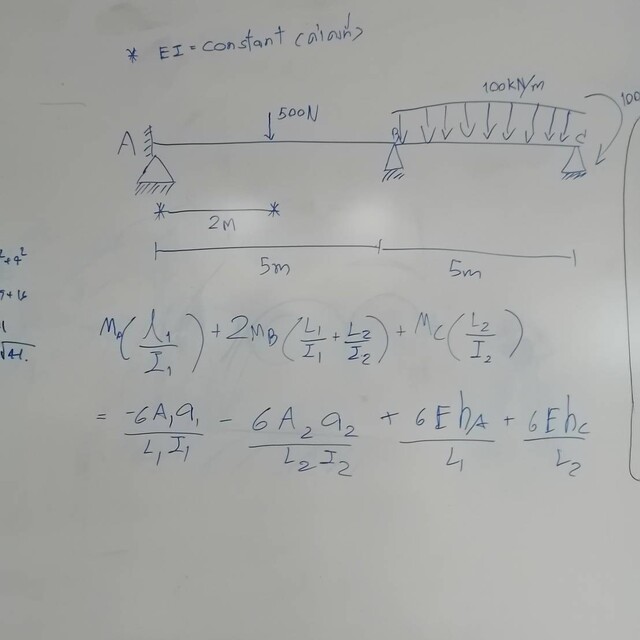 * EI = constant (ค่าคงที่)
100kN/m
100
500N
A
B
C
2m
5m
5m
M_A(L_1/I_1) + 2M_B(L_1/I_1 + L_2/I_2) + M_C(L_2/I_2)
= -6A_1a_1/L_1I_1 - 6A_2a_2/L_2I_2 + 6Eh_A/L_1 + 6Eh_C/L_2